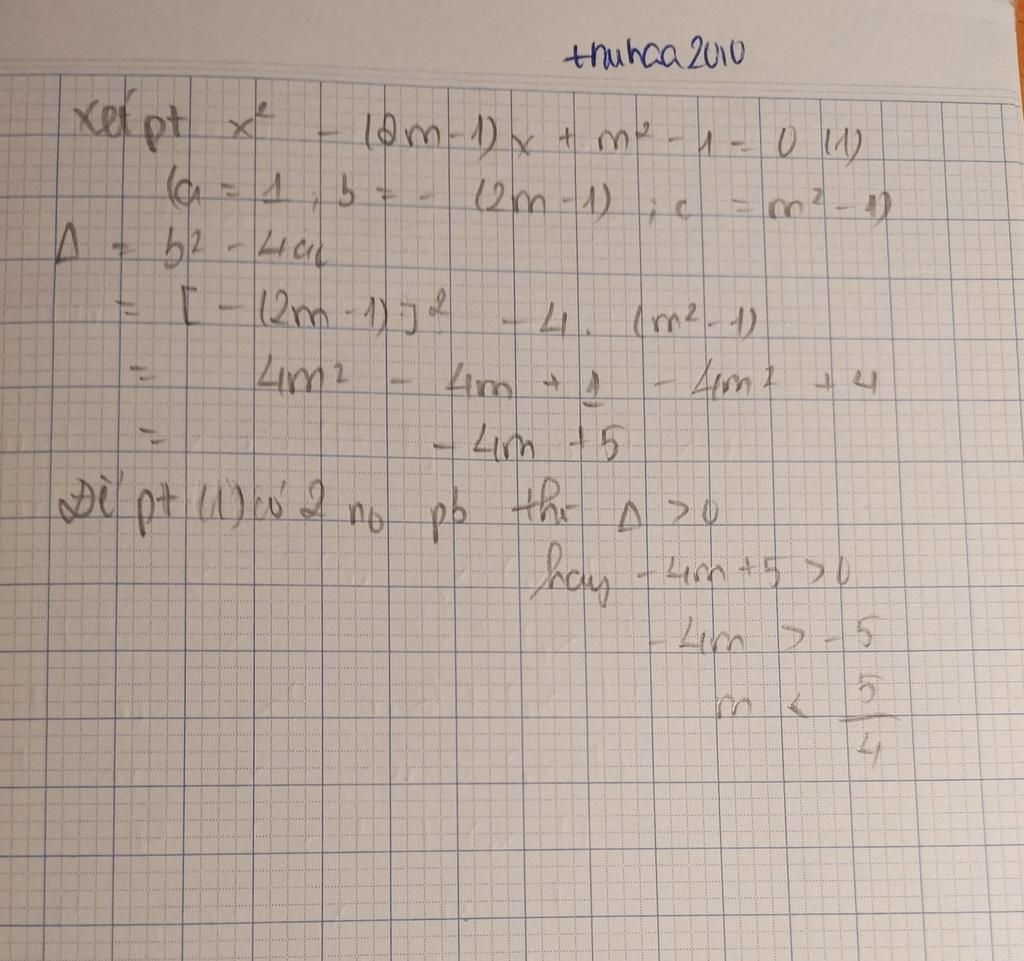 thuhaa2010
Xét pt x² - (2m-1)x + m² - 1 = 0 (1)
(a = 1, b = - (2m - 1) ; c = m² - 1)
Δ = b² - 4ac
= [ - (2m - 1) ]² - 4. (m² - 1)
= 4m² - 4m + 1 - 4m² + 4
= - 4m + 5
Để pt (1) có 2 no pb thì Δ > 0
hay - 4m + 5 > 0
- 4m > - 5
m < 5/4